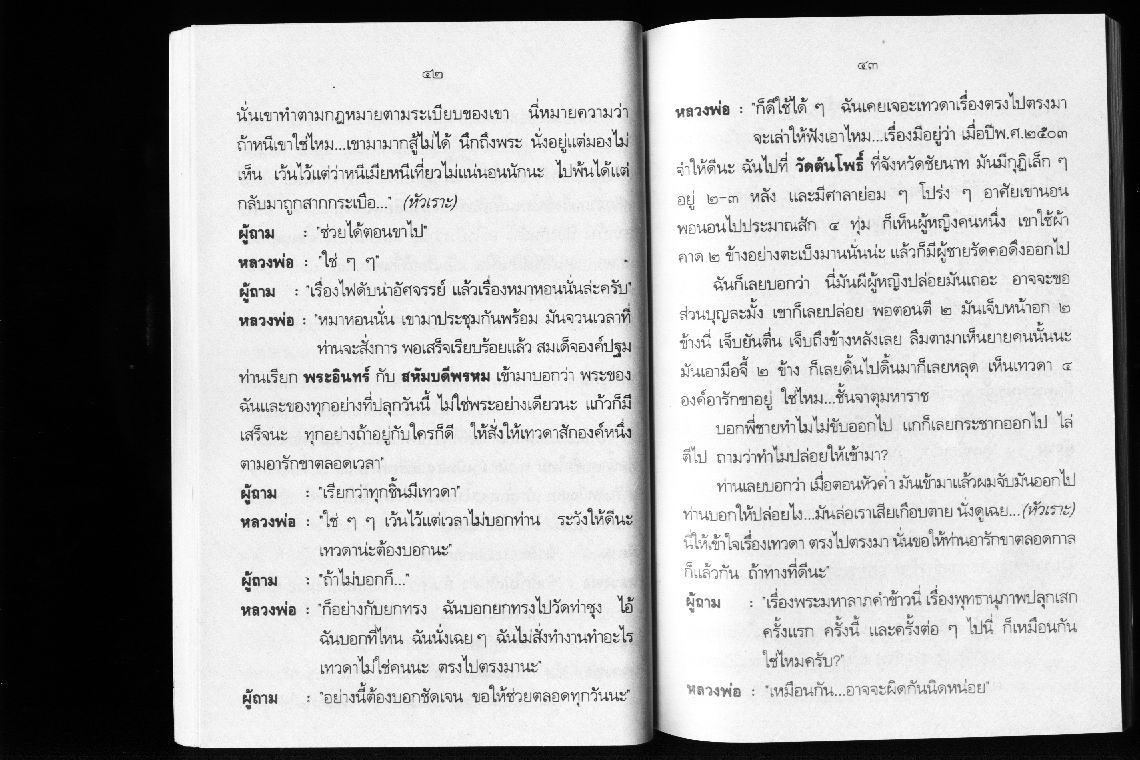 ๔๒
นั่นเขาทำตามกฎหมายตามระเบียบของเขา นี่หมายความว่า
ถ้าหนีเขาใช่ไหม...เขามามากสู้ไม่ได้ นึกถึงพระ นั่งอยู่แต่มองไม่
เห็น เว้นไว้แต่ว่าหนีเมียหนีเที่ยวไม่แน่นอนนักนะ ไปพ้นได้แต่
กลับมาถูกสากกระเบือ..." (หัวเราะ)
ผู้ถาม : "ช่วยได้ตอนขาไป"
หลวงพ่อ : "ใช่ ๆ ๆ"
ผู้ถาม : "เรื่องไฟดับน่าอัศจรรย์ แล้วเรื่องหมาหอนนั่นล่ะครับ"
หลวงพ่อ : "หมาหอนนั่น เขามาประชุมกันพร้อม มันจวนเวลาที่
ท่านจะสั่งการ พอเสร็จเรียบร้อยแล้ว สมเด็จองค์ปฐม
ท่านเรียก พระอินทร์ กับ สหัมบดีพรหม เข้ามาบอกว่า พระของ
ฉันและของทุกอย่างที่ปลุกวันนี้ ไม่ใช่พระอย่างเดียวนะ แก้วก็มี
เสร็จนะ ทุกอย่างถ้าอยู่กับใครก็ดี ให้สั่งให้เทวดาสักองค์หนึ่ง
ตามอารักขาตลอดเวลา"
ผู้ถาม : "เรียกว่าทุกชิ้นมีเทวดา"
หลวงพ่อ : "ใช่ ๆ ๆ เว้นไว้แต่เวลาไม่บอกท่าน ระวังให้ดีนะ
เทวดาน่ะต้องบอกนะ"
ผู้ถาม : "ถ้าไม่บอกก็..."
หลวงพ่อ : "ก็อย่างกับยกทรง ฉันบอกยกทรงไปวัดท่าซุง ไอ้
ฉันบอกที่ไหน ฉันนั่งเฉย ๆ ฉันไม่สั่งทำงานทำอะไร
เทวดาไม่ใช่คนนะ ตรงไปตรงมานะ"
ผู้ถาม : "อย่างนี้ต้องบอกชัดเจน ขอให้ช่วยตลอดทุกวันนะ"
๔๓
หลวงพ่อ : "ก็ดีใช้ได้ ๆ ฉันเคยเจอะเทวดาเรื่องตรงไปตรงมา
จะเล่าให้ฟังเอาไหม...เรื่องมีอยู่ว่า เมื่อปีพ.ศ.๒๕๐๓
จำให้ดีนะ ฉันไปที่ วัดต้นโพธิ์ ที่จังหวัดชัยนาท มันมีกุฏิเล็ก ๆ
อยู่ ๒-๓ หลัง และมีศาลาย่อม ๆ โปร่ง ๆ อาศัยเขานอน
พอนอนไปประมาณสัก ๔ ทุ่ม ก็เห็นผู้หญิงคนหนึ่ง เขาใช้ผ้า
คาด ๒ ข้างอย่างตะเบ็งมานนั่นน่ะ แล้วก็มีผู้ชายรัดคอดึงออกไป
ฉันก็เลยบอกว่า นี่มันผีผู้หญิงปล่อยมันเถอะ อาจจะขอ
ส่วนบุญละมั้ง เขาก็เลยปล่อย พอตอนตี ๒ มันเจ็บหน้าอก ๒
ข้างนี่ เจ็บยันตื่น เจ็บถึงข้างหลังเลย ลืมตามาเห็นยายคนนั้นนะ
มันเอามือจี้ ๒ ข้าง ก็เลยดิ้นไปดิ้นมาก็เลยหลุด เห็นเทวดา ๔
องค์อารักขาอยู่ ใช่ไหม...ชั้นจาตุมหาราช
บอกพี่ชายทำไมไม่ขับออกไป แกก็เลยกระชากออกไป ไล่
ตีไป ถามว่าทำไมปล่อยให้เข้ามา?
ท่านเลยบอกว่า เมื่อตอนหัวค่ำ มันเข้ามาแล้วผมจับมันออกไป
ท่านบอกให้ปล่อยไง...มันล่อเราเสียเกือบตาย นั่งดูเฉย...(หัวเราะ)
นี่ให้เข้าใจเรื่องเทวดา ตรงไปตรงมา นั่นขอให้ท่านอารักขาตลอดกาล
ก็แล้วกัน ถ้าทางที่ดีนะ"
ผู้ถาม : "เรื่องพระมหาลาภคำข้าวนี่ เรื่องพุทธานุภาพปลุกเสก
ครั้งแรก ครั้งนี้ และครั้งต่อ ๆ ไปนี่ ก็เหมือนกัน
ใช่ไหมครับ?"
หลวงพ่อ : "เหมือนกัน...อาจจะผิดกันนิดหน่อย"